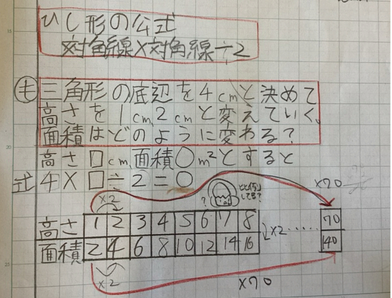 ひし形の公式
対角線×対角線÷2
も 三角形の底辺を4cmと決めて
高さを1cm2cmと変えていく。
面積はどのように変わる?
高さ□cm面積○m²とすると
式 4×□÷2=○
×2 ? ×70
高さ 1 2 3 4 5 6 7 8 70
面積 2 4 6 8 10 12 14 16 ↓×2…… 140
×2 ×70